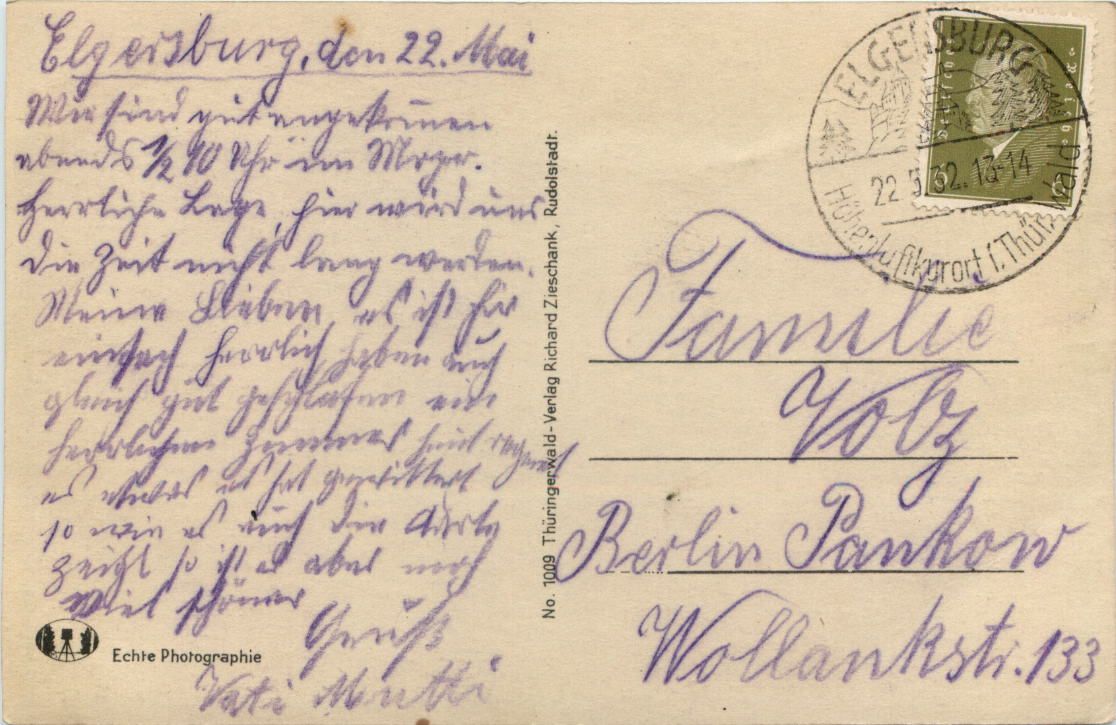 Elgersburg, den 22. Mai
Wir sind gut angekommen
abends 1/2 10 Uhr im
Herrliche Lage, hier wird uns
die Zeit nicht lang werden.
Meine Lieben, es ist hir
einfach herrlich, haben auch
gleich gut geschlafen ein
herrliches Zimmer heut regnet
es etwas es hat gewittert
so wie es auch die Karte
zeigt so ist es aber noch
viel schöner
Gruß
Vati Mutti
Echte Photographie
No. 1009 Thüringerwald-Verlag Richard Zieschank, Rudolstadt.
ELGERSBURG
22.5.32.13-14
Höhenluftkurort i. Thür. Wald
Familie
Volz
Berlin Pankow
Wollankstr. 133